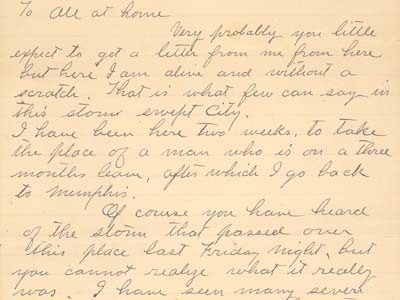 To All at home
Very probably you little
expect to get a letter from me from here
but here I am alive and without a
scratch. That is what few can say in
this storm swept City.
I have been here two weeks, to take
the place of a man who is on a three
months leave, after which I go back
to Memphis.
Of course you have heard
of the storm that passed over
this place last Friday night, but
you cannot realize what it really
was. I have seen many severe